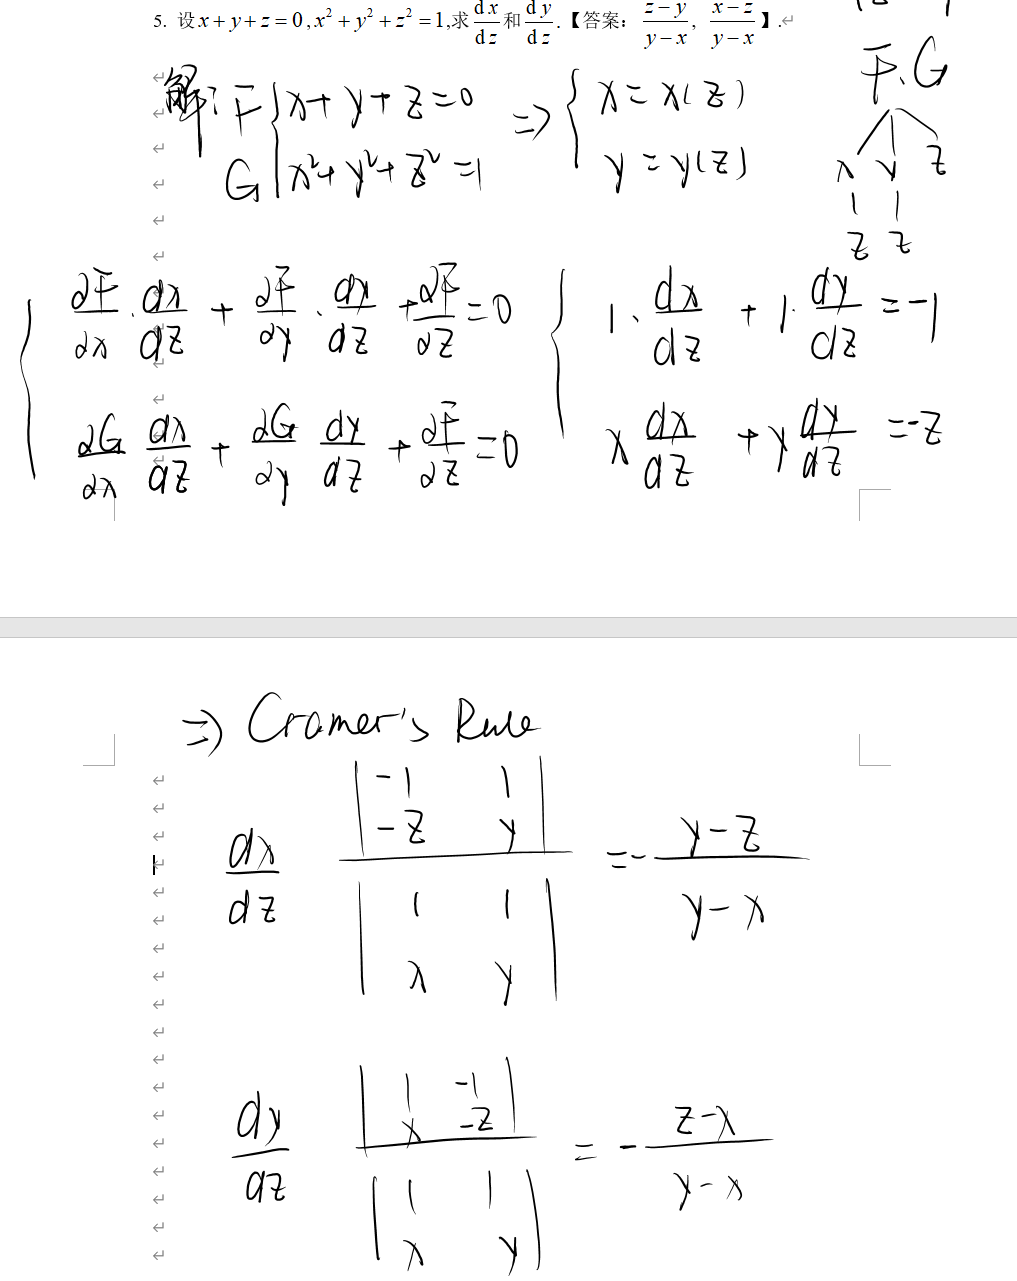 5. 设 x + y + z = 0 , x² + y² + z² = 1,求 dx/dz 和 dy/dz .【答案： (z−y)/(y−x) , (x−z)/(y−x) 】.
解: F { x + y + z = 0 => { x = x(z)
G { x² + y² + z² = 1 { y = y(z)
F. G
x y z
z z
{ ∂F/∂x · dx/dz + ∂F/∂y · dy/dz + ∂F/∂z = 0
{ ∂G/∂x dx/dz + ∂G/∂y dy/dz + ∂F/∂z = 0
{ 1 · dx/dz + 1 · dy/dz = -1
{ x dx/dz + y dy/dz = -z
=> Cramer's Rule
dx/dz | -1 1 ; -z y | / | 1 1 ; x y | = - (y-z)/(y-x)
dy/dz | 1 -1 ; x -z | / | 1 1 ; x y | = - (z-x)/(y-x)